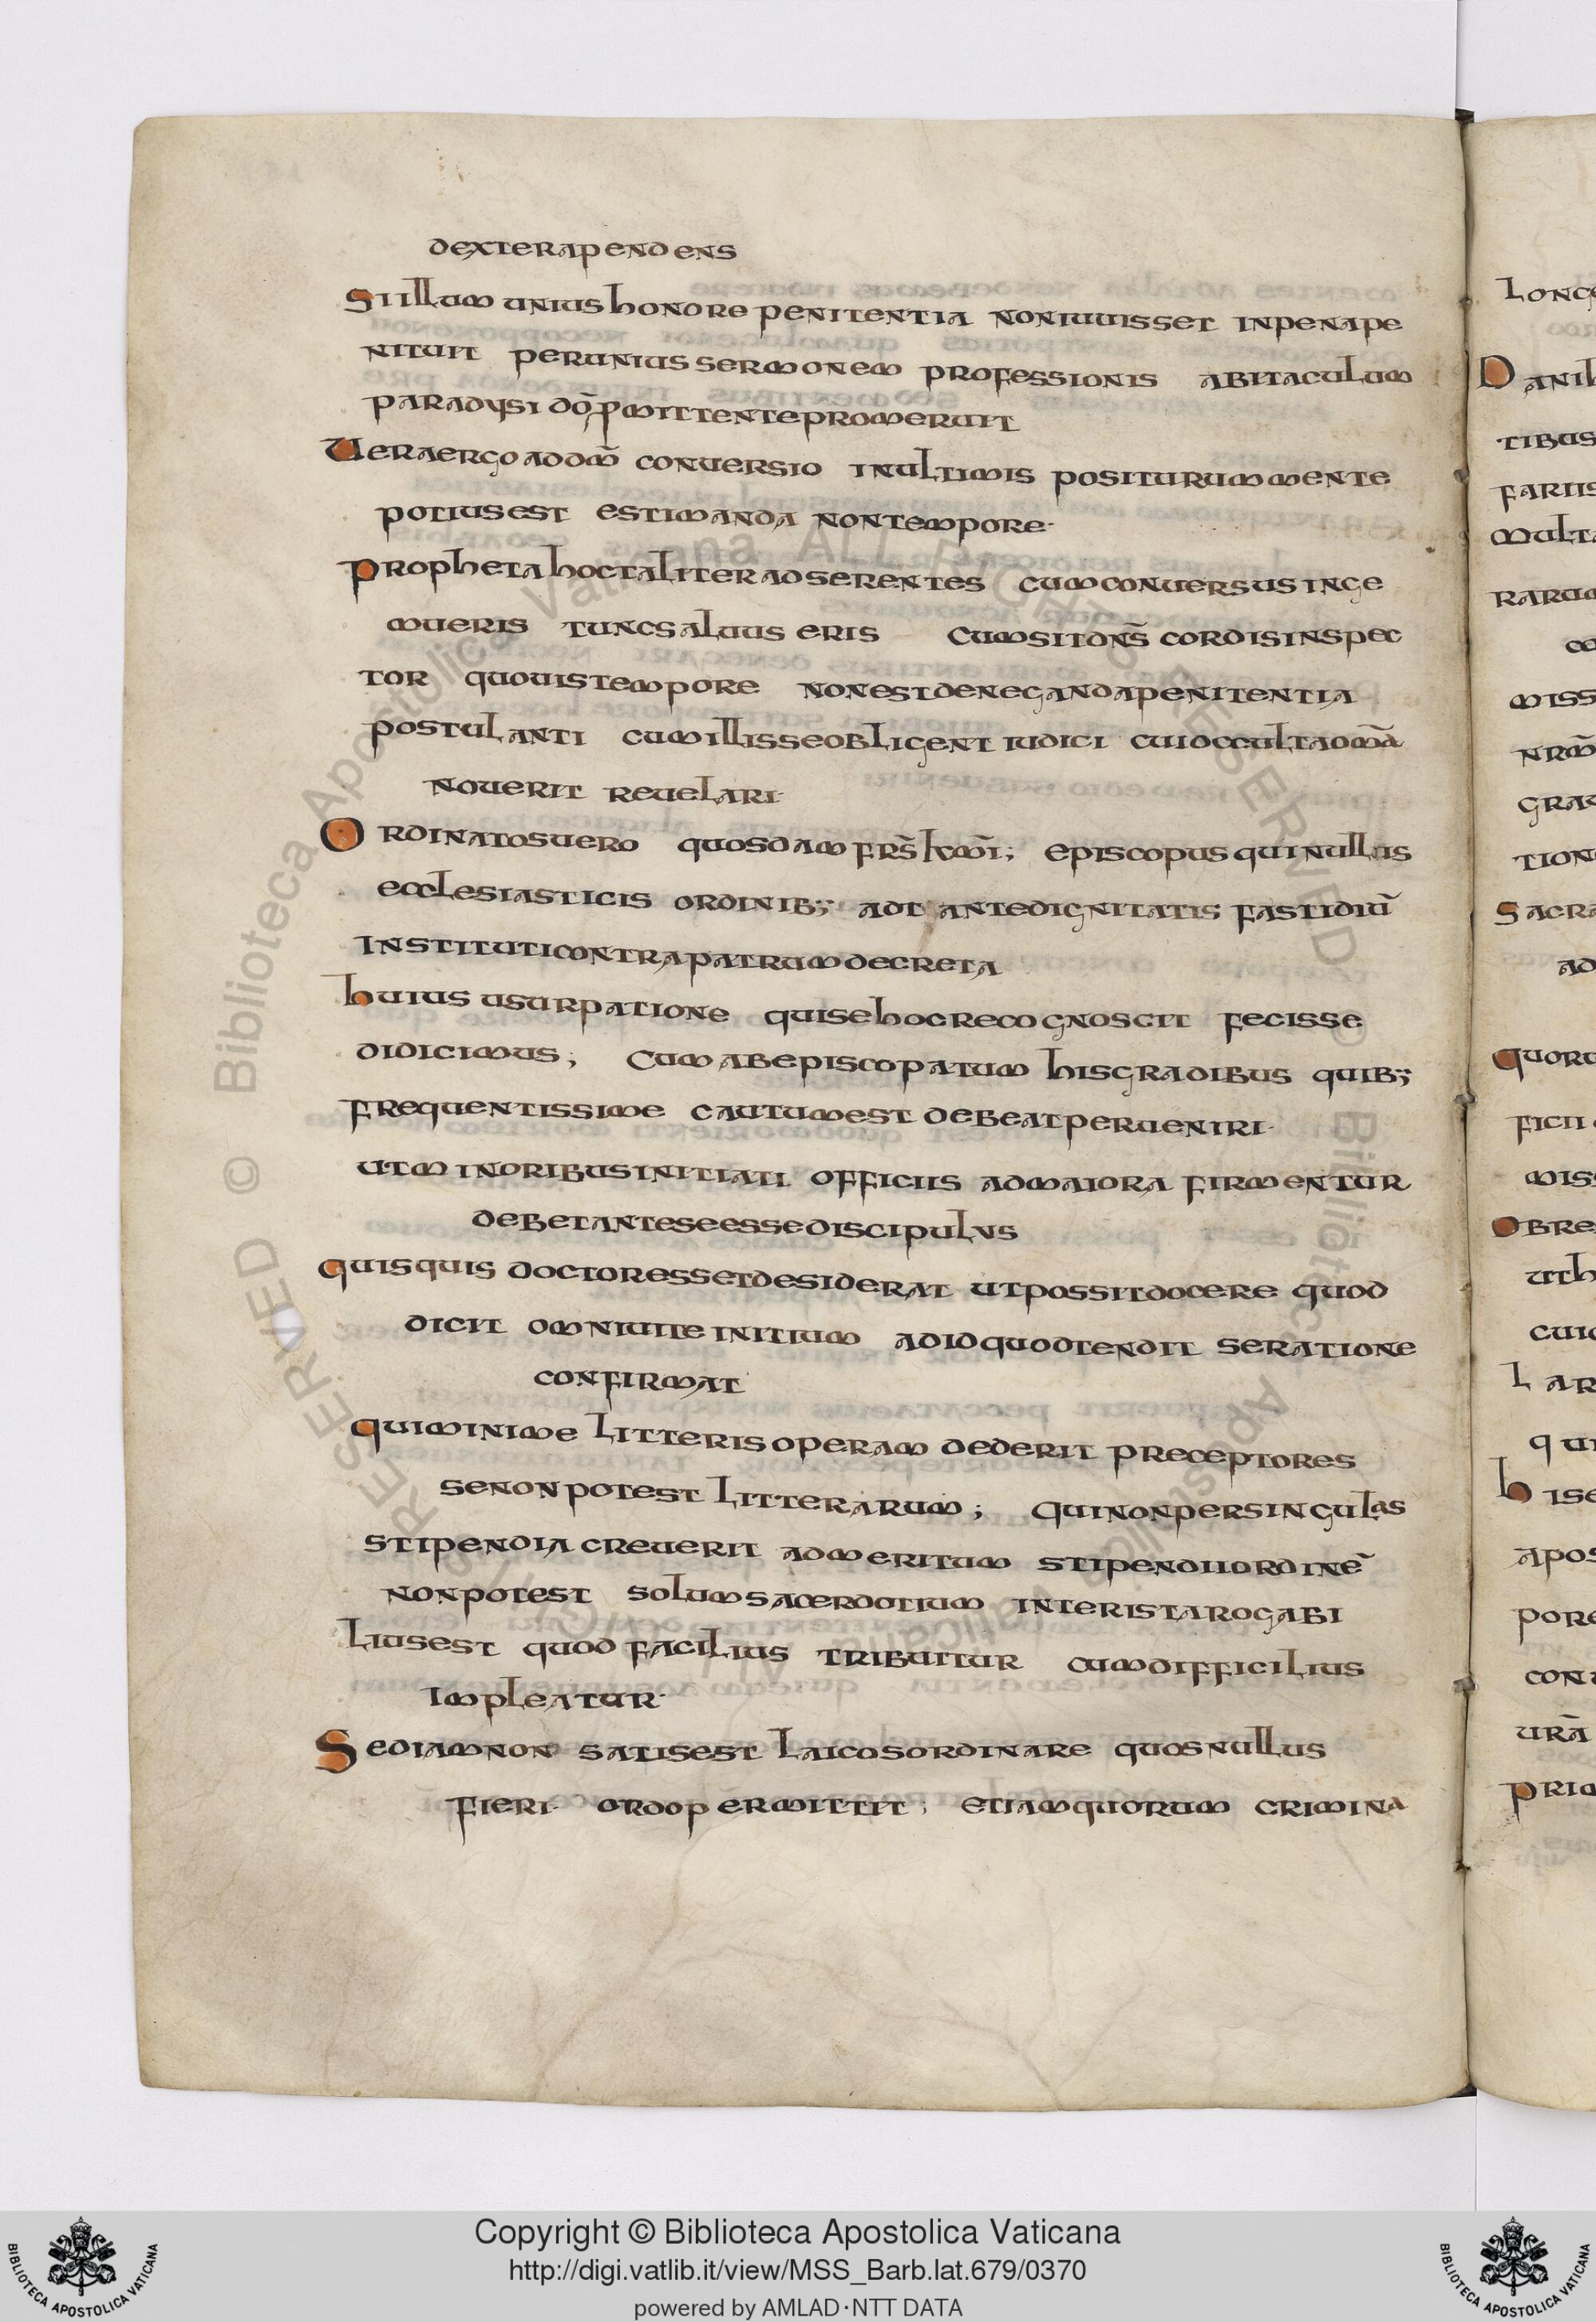 dexterapendens
siillum unius honore penitentia noniuuisset inpenape
nituit perunius sermonem professionis abitaculum
paradysi dō p̄mittentepromeruit
Ueraergo addm̄ conuersio inultimis positurum mente
potiusest estimanda nontempore·
propheta hoctaliter adserentes cumconuersus inge
mueris tuncsaluus eris cumsitdn̄s cordisinspec
tor quouistempore nonestdenegandapenitentia
postulanti cumillisseobligent iudici cuioccultaom̄a
nouerit reuelari·
Ordinatosuero quosdam frs̄ kmi̅; episcopus quinullus
ecclesiasticis ordinib; adt antedignitatis fastidiū
instituticontrapatrumdecreta
huius usurpatione quisehocrecognoscit fecisse
didicimus; Cumabepiscopatum hisgradibus quib;
frequentissime cautumest debeatperueniri·
utminoribusinitiati officiis admaiora firmentur
debetanteseessediscipulus
quisquis doctoressetdesiderat utpossitdocere quod
dicit omniuite initium adidquodtendit seratione
confirmat
quiminime litteris operam dederit preceptores
senonpotest litterarum; quinonpersingulas
stipendia creuerit admeritum stipendiiordinē
nonpotest solumsacerdotium interistarogabi
liusest quod facilius tribuitur cumdifficilius
impleatur·
Sediamnon satisest laicosordinare quosnullus
fieri· ordopermittit; etiamquorum crimina
long
Danih
tibus
fariis
multa
rarum
miss
nrm̄
grau
tion
sacra
ad
quoru
ficii
miss
obre
uth
cuic
lar
qui
hise
apos
pore
con
urā
prim
Copyright © Biblioteca Apostolica Vaticana
http://digi.vatlib.it/view/MSS_Barb.lat.679/0370
powered by AMLAD·NTT DATA
BIBLIOTECA APOSTOLICA VATICANA
BIBLIOTECA APOSTOLICA VATICANA
© Biblioteca Apostolica Vaticana ALL RIGHTS RESERVED © Biblioteca Apostolica Vaticana ALL RIGHTS RESERVED